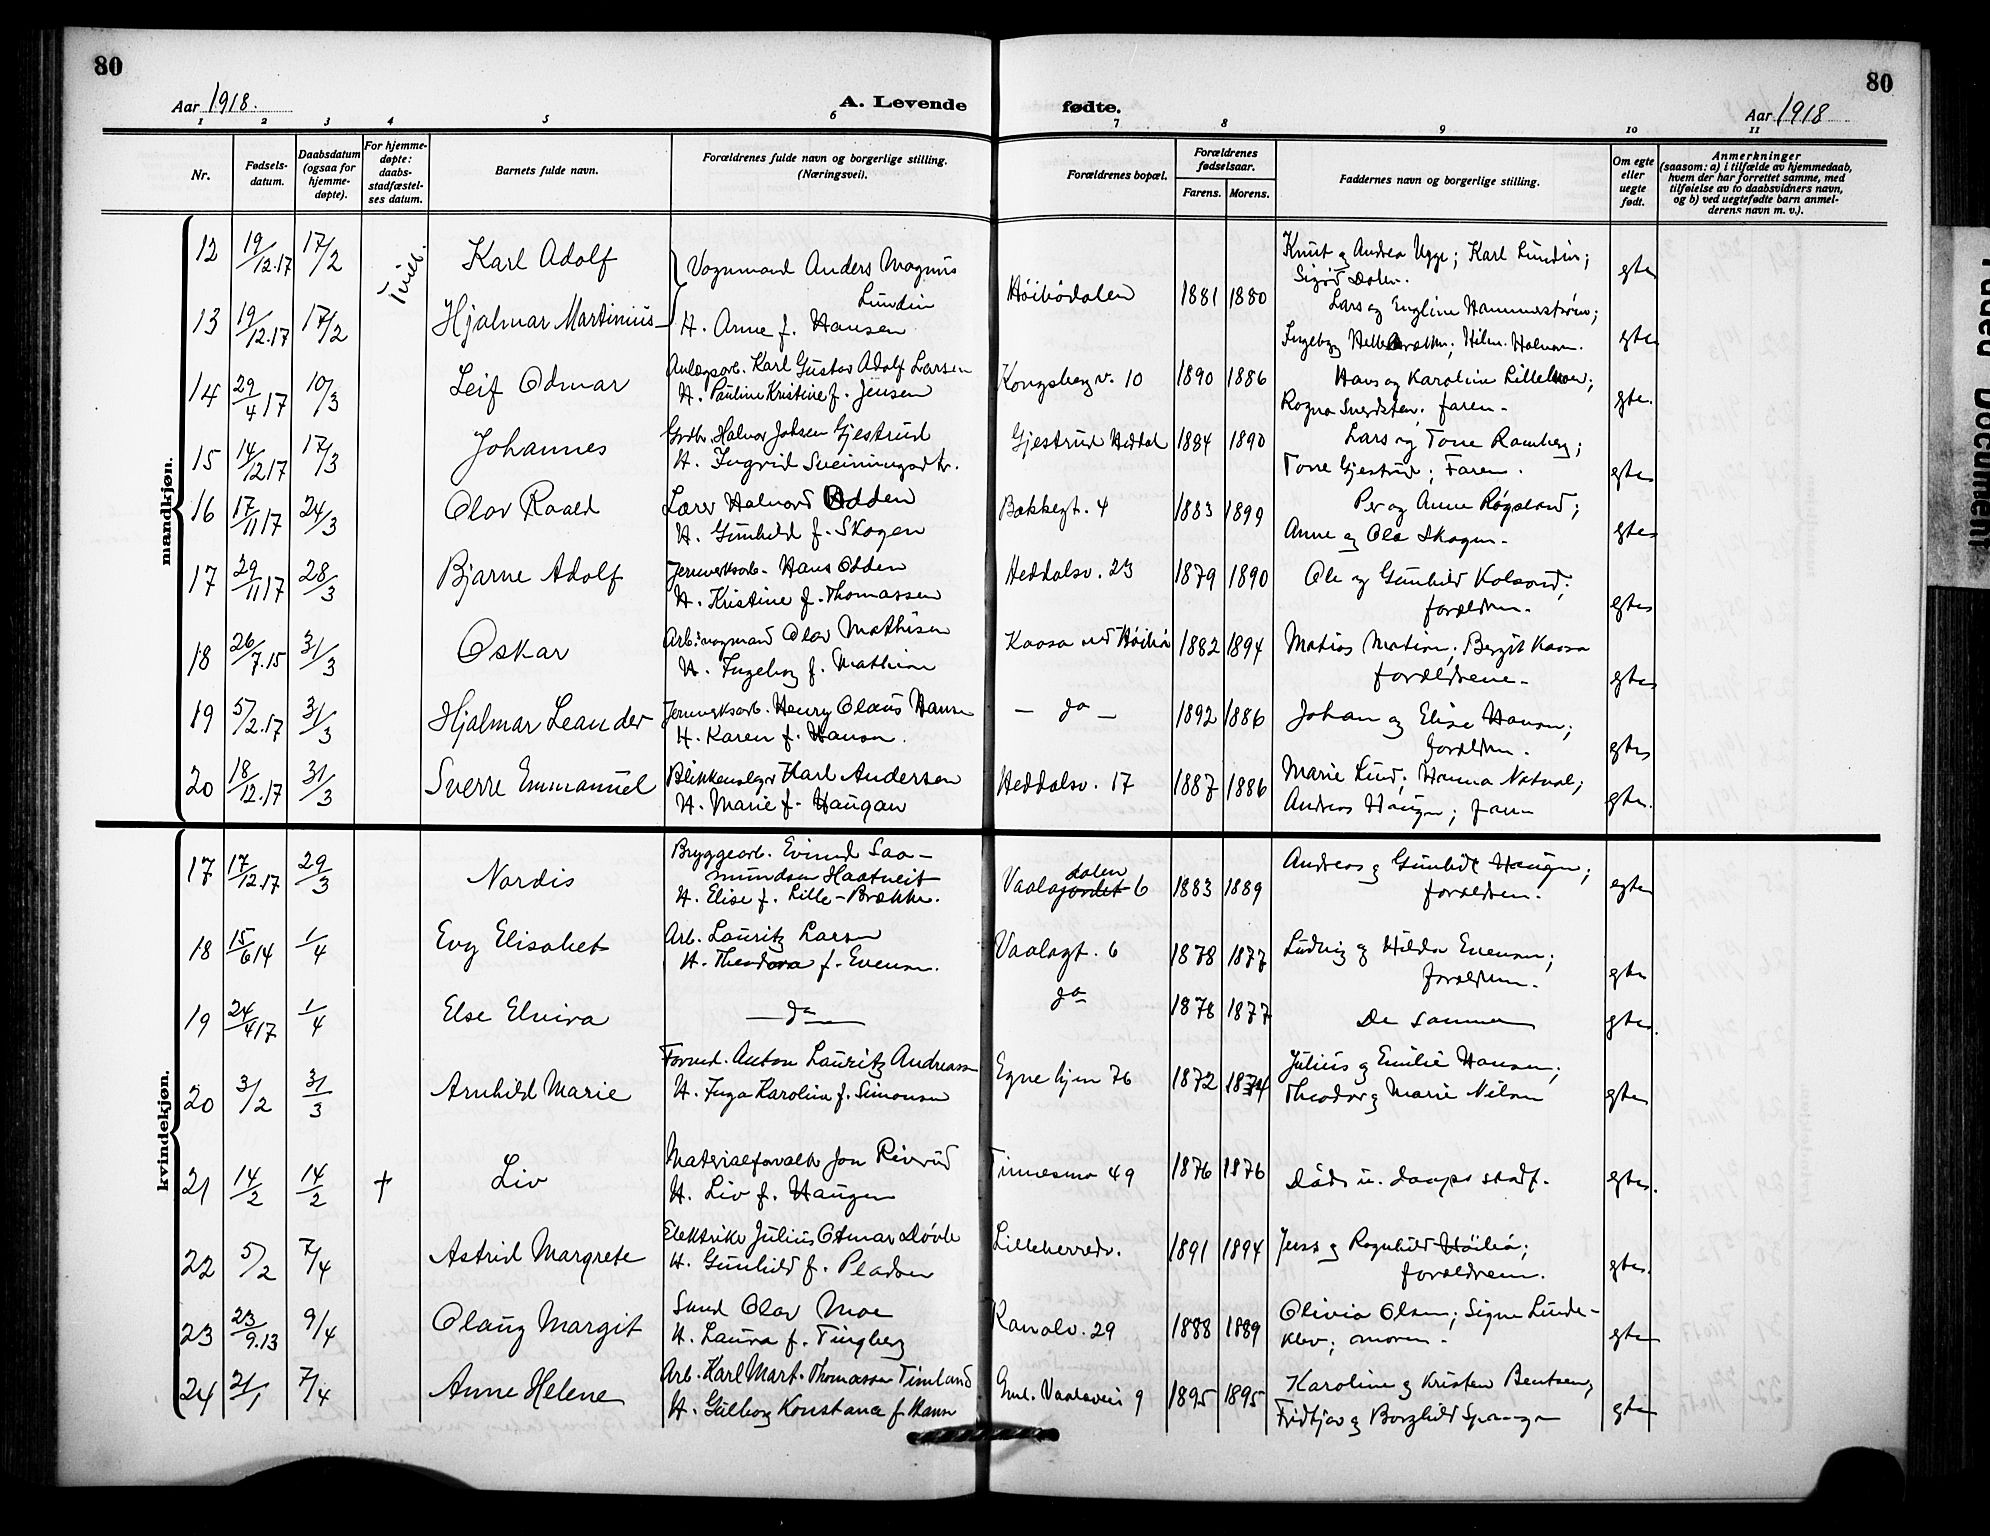 80
80
Aar 1918.
A. Levende fødte.
Aar 1918
1 2 3 4 5 6 7 8 9 10 11
Nr.
Fødsels-datum.
Daabsdatum (ogsaa for hjemme-døpte).
For hjemme-døpte: daabs-stadfæstel-ses datum.
Barnets fulde navn.
Forældrenes fulde navn og borgerlige stilling. (Næringsvei).
Forældrenes bopæl.
Forældrenes fødselsaar.
Farens. Morens.
Faddernes navn og borgerlige stilling.
Om egte eller uegte født.
Anmerkninger (saasom: a) i tilfælde av hjemmedaab, hvem der har forrettet samme, med tilføielse av to daabsvidners navn, og b) ved uegtefødte barn anmel-derens navn m. v.).
mandkjøn.
12 19/12.17 17/2 Karl Adolf Vognmand Anders Magnus Høibødalen 1881 1880 Knut og Andrea Ugge; Karl Lundin; egte
Tvill. Lundin Sigrid Dalen.
13 19/12.17 17/2 Hjalmar Martinius H. Anne f. Hansen Lars og Engline Hammerstrøm; egte
Ingeborg
14 29/4 17 10/3 Leif Odmar Anlægsarb. Karl Gustav Adolf Larsen Kongsbergv. 10 1890 1886 Hans og Karoline Lillemoen; egte.
H. Pauline Kristine f. Jensen Ragna faren.
15 14/12 17 17/3 Johannes Grdbr. Halvor Johsen Gjestrud Gjestrud Heddal 1884 1890 Lars og Tone Ramberg; egte
H. Ingrid Sveinungsdtr. Tone Gjestrud; Faren.
16 17/11 17 24/3 Olav Roald Lærer Halvord Odden Bakkegt. 4 1883 1899 Per og Anne Røgeland; egte
H. Gunhild f. Skogen Anne og Ola Skogen.
17 29/11 17 28/3 Bjarne Adolf Jernverksarb. Hans Odden Heddalsv. 23 1879 1890 Ole og Gunhild Kolsrud; egte
H. Kristine f. Thomassen forældren.
18 26/7.15 31/3 Oskar Arb. vognmand Olav Mathisen Kaasa ved Høibø 1882 1894 Matias Matisen; Bergit Kaasa egte
H. Ingeborg f. Mathisen forældrene.
19 5/2.17 31/3 Hjalmar Leander Jernverksarb. Henry Olaus Hansen — do — 1892 1886 Johan og Elise Hansen; egte
H. Karen f. Hansen. forældren.
20 18/12.17 31/3 Sverre Emmanuel Blikkenslager Karl Andersen Heddalsv. 17 1887 1886 Marie Lind; Hanna Natval; egte.
H. Marie f. Haugan Andreas Haugen; faren
kvindekjøn.
17 17/12.17 29/3 Nordis Bryggearb. Eivind Saa- Vaalagjordet dalen 6 1883 1889 Andreas og Gunhild Haugen; egte
mundsen Haatveit forældren.
H. Elise f. Lille-Brække.
18 15/6 14 1/4 Evy Elisabet Arb. Lauritz Larsen Vaalagt. 6 1878 1877 Ludvig og Hilda Evensen; egte
H. Theodora f. Evensen. forældren.
19 24/4 17 1/4 Else Elvira — do — do 1878 1877 De samme egte.
20 3/2 31/3 Arnhild Marie Formd. Anton Lauritz Andreassen Egne hjem 76 1872 1874 Julius og Emilie Hansen; egte
H. Inga Karoline f. Simonsen Theodor og Marie Nilsen
21 14/2 14/2 † Liv Materialforvalter Jon Riverud Tinnesmo 49 1876 1876 Døde u. daaps stadf. egte.
H. Liv f. Haugen
22 5/2 7/4 Astrid Margrete Elektriker Julius Otmar Døvle Lilleherredv. 1891 1894 Jens og Ragnhild Høibø; egte.
H. Gunhild f. Pladsen forældrene.
23 23/9.13 9/4 Olaug Margit Smed Olav Moe Kanalv. 29 1888 1889 Olivia Olsen; Signe Linde- egte
H. Laura f. Tingberg klev; moren.
24 21/1 7/4 Anne Helene Arb. Karl Mart. Thomassen Timland Gml. Vaalavei 9 1895 1895 Karoline og Kristen Bentsen, egte
H. Gulborg Konstance f. Hansen Fridtjov og Borghild